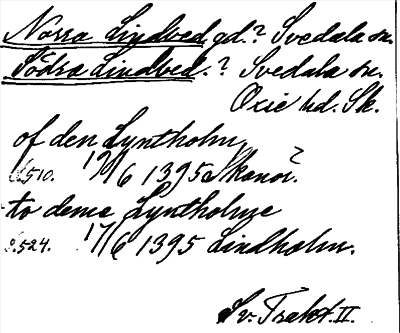 Norra Lindved gd.? Svedala sn.
Södra Lindved.? Svedala sn.
Oxie hd. Sk.
of den Lyntholm,
s.510. 19/6 1395 Skanör.?
to deme Lyntholme
s.524. 17/6 1395 Lindholm.
Sv. Trakt. II.